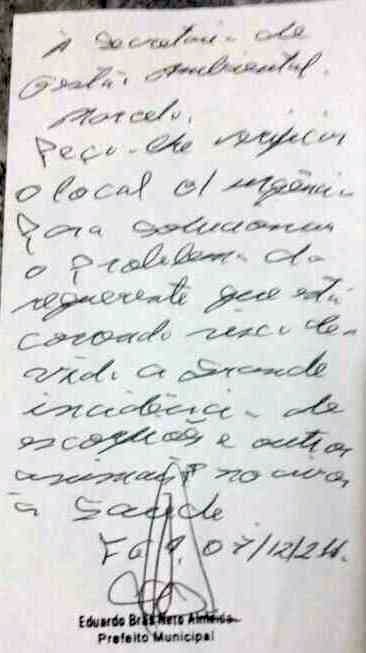 À Secretaria de
Gestão Ambiental.
Marcelo,
Peço-lhe verificar
o local c/ urgência
para solucionar
o problema da
requerente que está
correndo risco de-
vido a grande
incidência de
escorpiões e outros
animais nocivos
à Saúde
07/12/
Eduardo Brás Neto Almeida
Prefeito Municipal